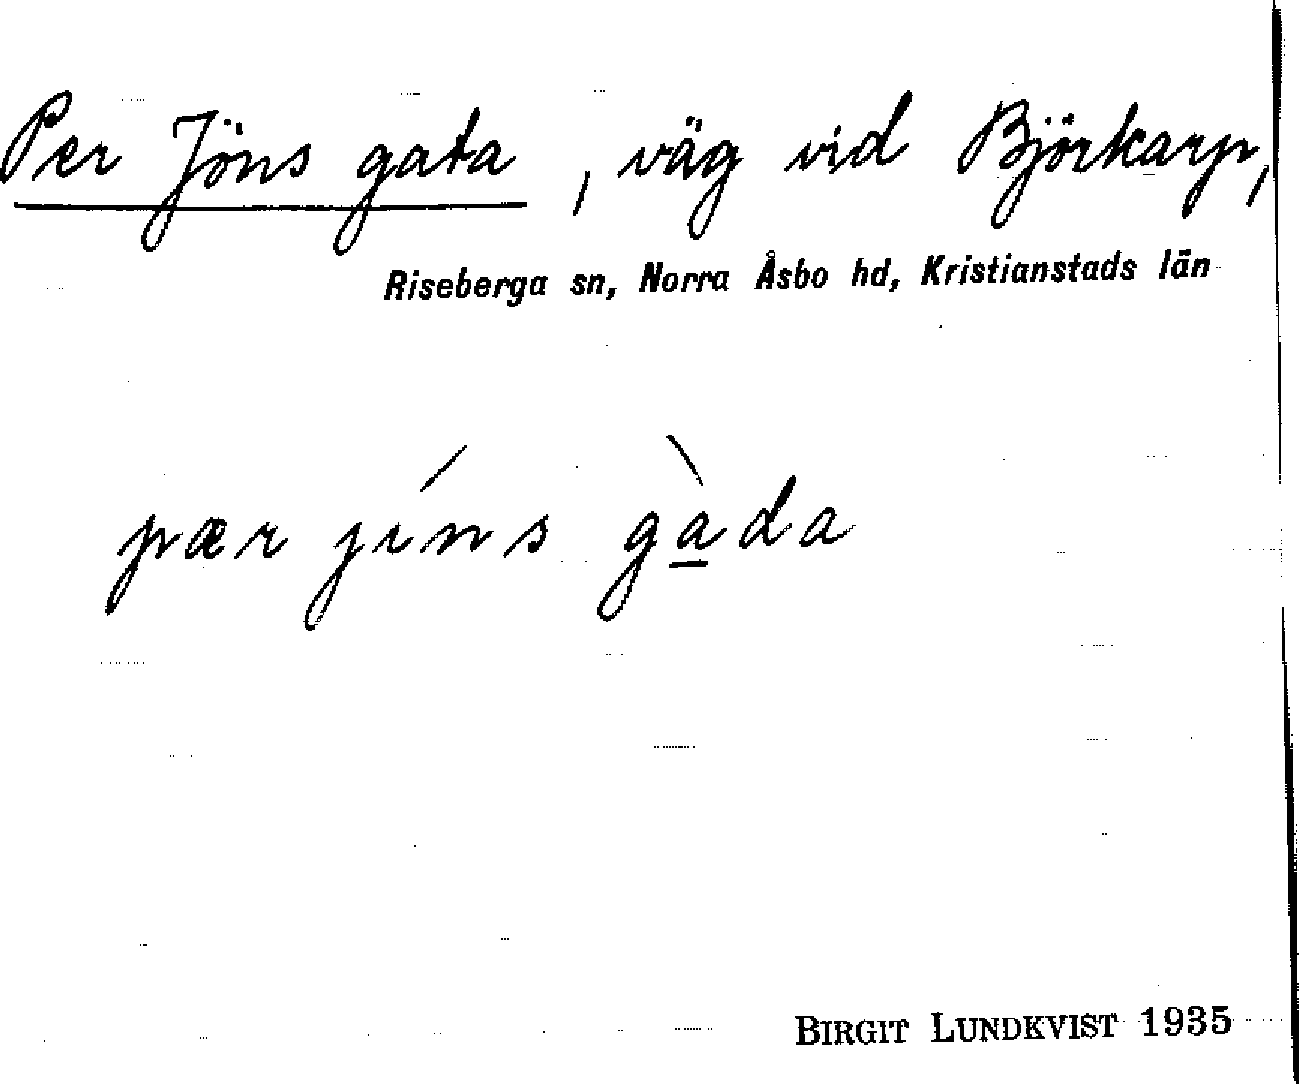 Per Jöns gata, väg vid Björkarp,
Riseberga sn, Norra Åsbo hd, Kristianstads län
pær jíns gà̲da
BIRGIT LUNDKVIST 1935